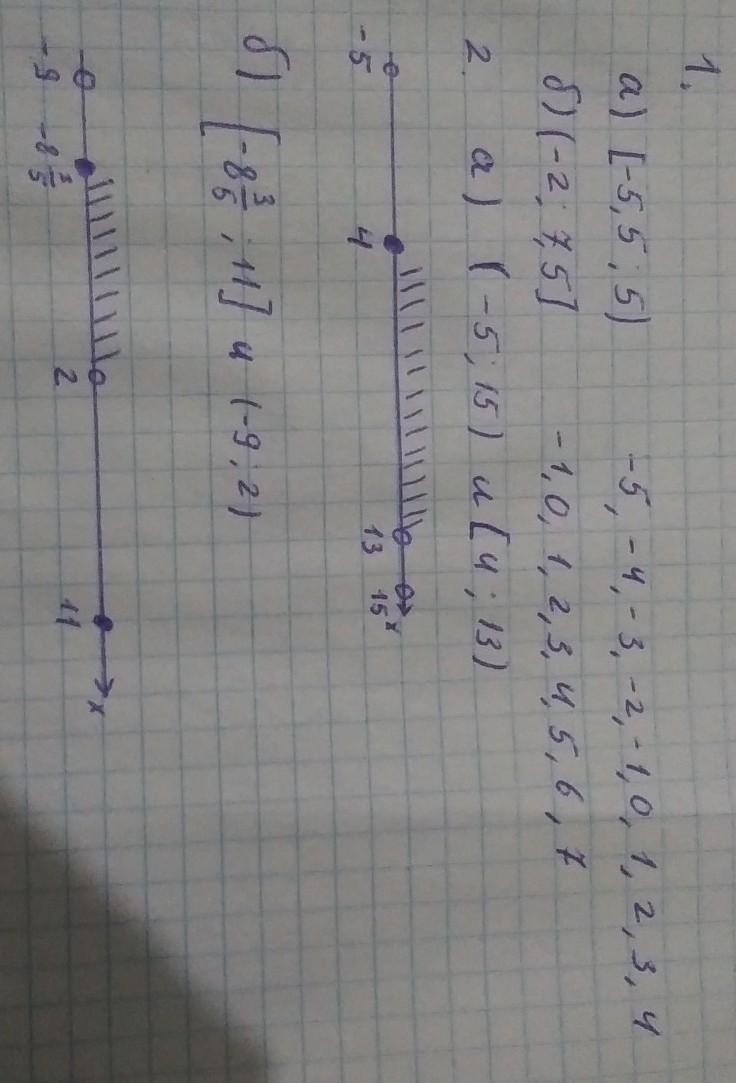 1.
а) [-5,5 ; 5) -5, -4, -3, -2, -1, 0, 1, 2, 3, 4
б) (-2; 7,5] -1, 0, 1, 2, 3, 4, 5, 6, 7
2. а) (-5; 15) и [4; 13)
-5 4 13 15 x
б) [-8 3/5 ; 11] и (-9; 2)
-9 -8 3/5 2 11 x